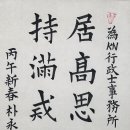 為KN行政士事務所
居高思
持滿戒
丙午新春 朴永